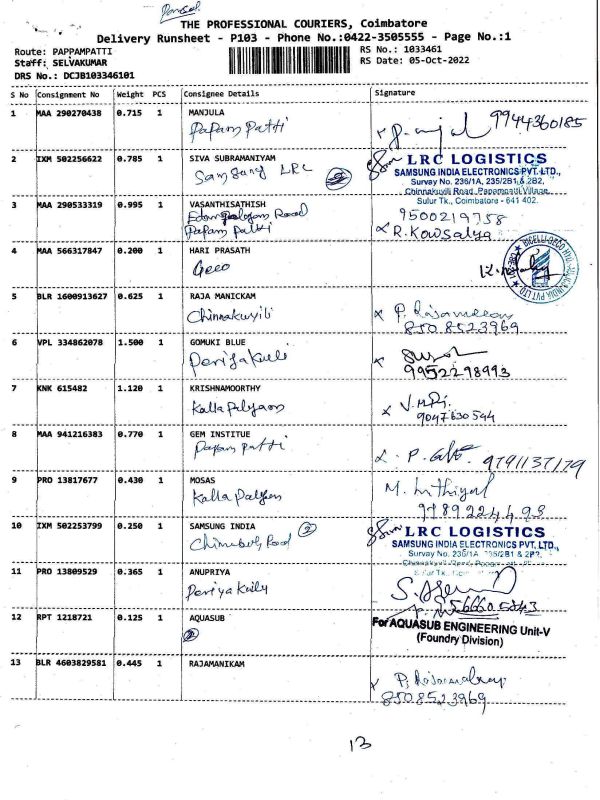 Parcel
THE PROFESSIONAL COURIERS, Coimbatore
Delivery Runsheet - P103 - Phone No.:0422-3505555 - Page No.:1
Route: PAPPAMPATTI
RS No.: 1033461
Staff: SELVAKUMAR
RS Date: 05-Oct-2022
DRS No.: DCJB103346101
S No Consignment No Weight PCS Consignee Details Signature
1 MAA 290270438 0.715 1 MANJULA
Papam Patti
9944360185
2 IXM 502256622 0.785 1 SIVA SUBRAMANIYAM
Samsang LRC
LRC LOGISTICS
SAMSUNG INDIA ELECTRONICS PVT. LTD.,
Survey No. 236/1A, 235/2B1 & 2B2,
Chinnakuyili Road, Papampatti Village,
Sulur Tk., Coimbatore - 641 402.
3 MAA 290533319 0.995 1 VASANTHISATHISH
Road
Papam Patti
9500219758
R. Kowsalya
4 MAA 566317847 0.200 1 HARI PRASATH
Geeo
5 BLR 1600913627 0.625 1 RAJA MANICKAM
Chinnakuyili
8508523969
6 VPL 334862078 1.500 1 GOMUKI BLUE
Periyakuli
9952298993
7 KNK 615482 1.120 1 KRISHNAMOORTHY
Kallapalyam
9047630544
8 MAA 941216383 0.770 1 GEM INSTITUE
Papam Patti
9791137179
9 PRO 13817677 0.430 1 MOSAS
Kalla Palyam
M.
9789224498
10 IXM 502253799 0.250 1 SAMSUNG INDIA
2
Road
LRC LOGISTICS
SAMSUNG INDIA ELECTRONICS PVT. LTD.,
Survey No. 236/1A, 235/2B1 & 2B2,
11 PRO 13809529 0.365 1 ANUPRIYA
Periya Kuily
12 RPT 1218721 0.125 1 AQUASUB
2
For AQUASUB ENGINEERING Unit-V
(Foundry Division)
13 BLR 4603829581 0.445 1 RAJAMANIKAM
8508523969
13